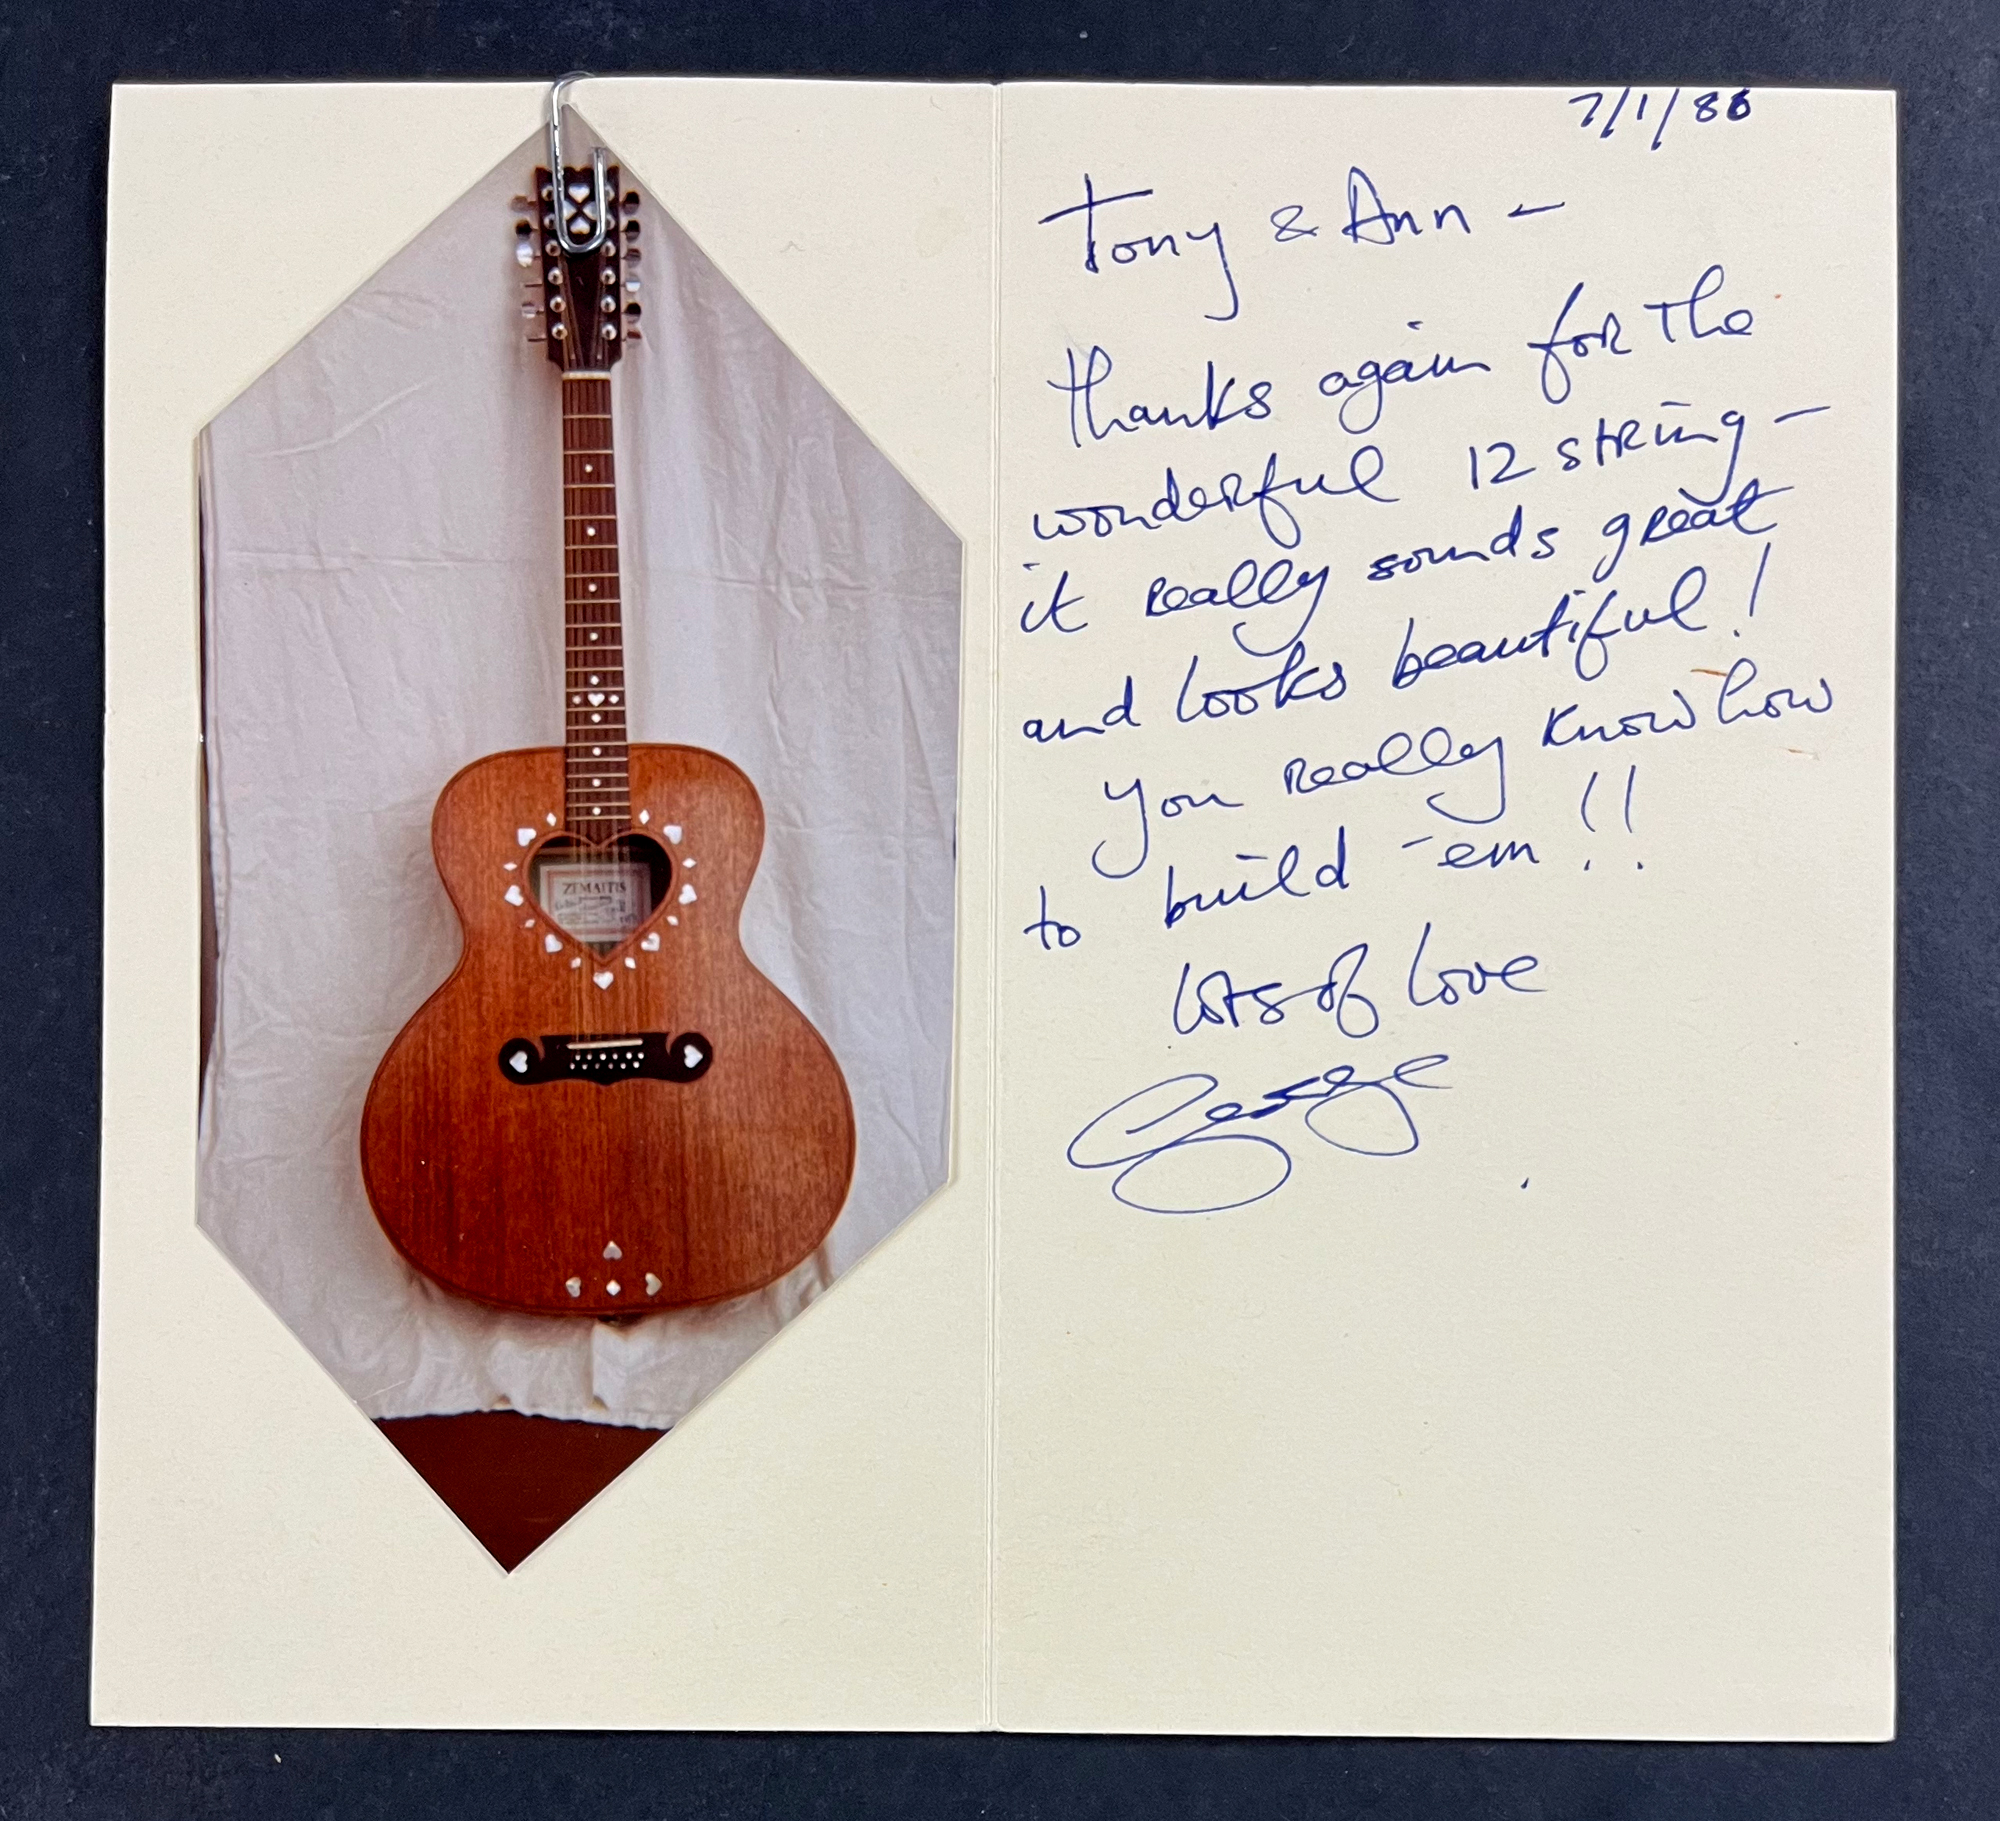 ZEMAITIS
7/1/86
Tony & Ann —
Thanks again for the
wonderful 12 string —
it really sounds great
and looks beautiful!
you really know how
to build 'em!!
lots of love
George